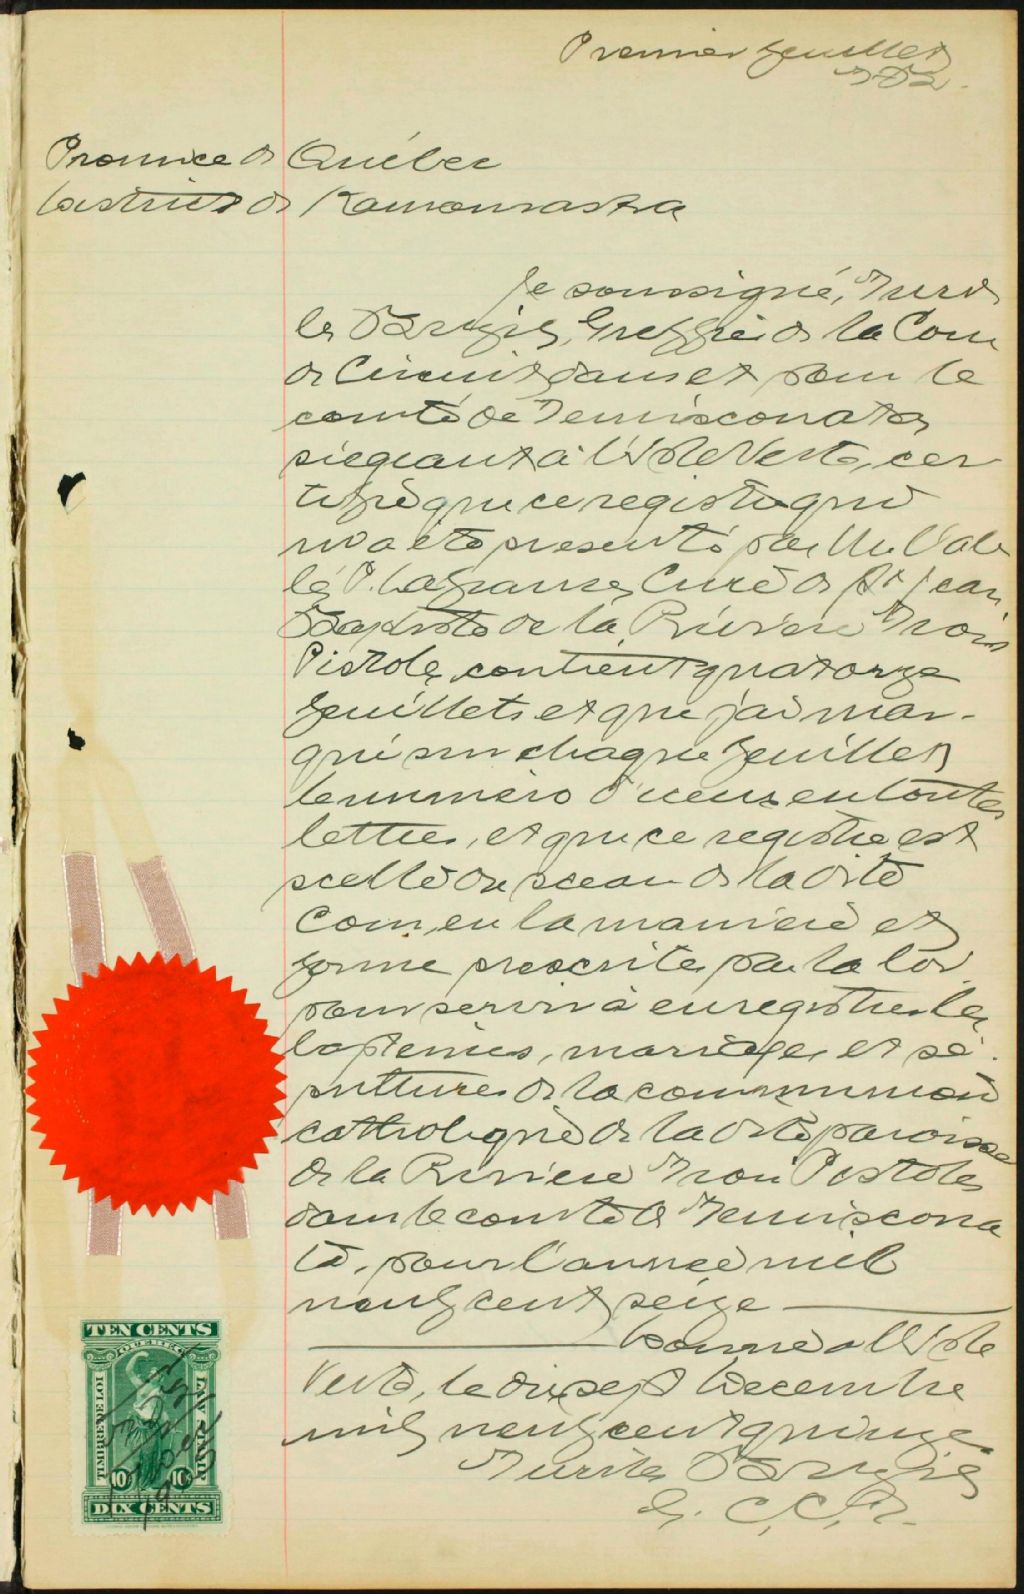 Premier feuillet
Province de Québec
District de Kamouraska
Je soussigné,
Greffier de la Cour
de Circuit dans et pour le
comté de Temiscouata
siegeant à l'Isle Verte, cer
tifie que ce registre qui
m'a été presenté par Mr
Curé de St Jean
Baptiste de la Rivière Trois
Pistoles, contient quatorze
feuillets et que j'ai mar-
qué sur chaque feuillet
le numero d'iceux en toutes
lettres, et que ce registre est
scellé du sceau de la dite
Cour, en la maniere et
forme prescrite par la loi
pour servir à enregistrer les
baptemes, mariages, et sé-
pultures de la communion
catholique de la dite paroisse
de la Riviere Trois Pistoles
dans le comté de Temiscoua
ta, pour l'année mil
neuf cent seize
Donné a l'Isle
Verte, le dix sept Decembre
mil neuf cent quinze
G. C. C. T.
TEN CENTS
QUEBEC
TIMBRE DE LOI
LAW STAMP
10c 10c
DIX CENTS